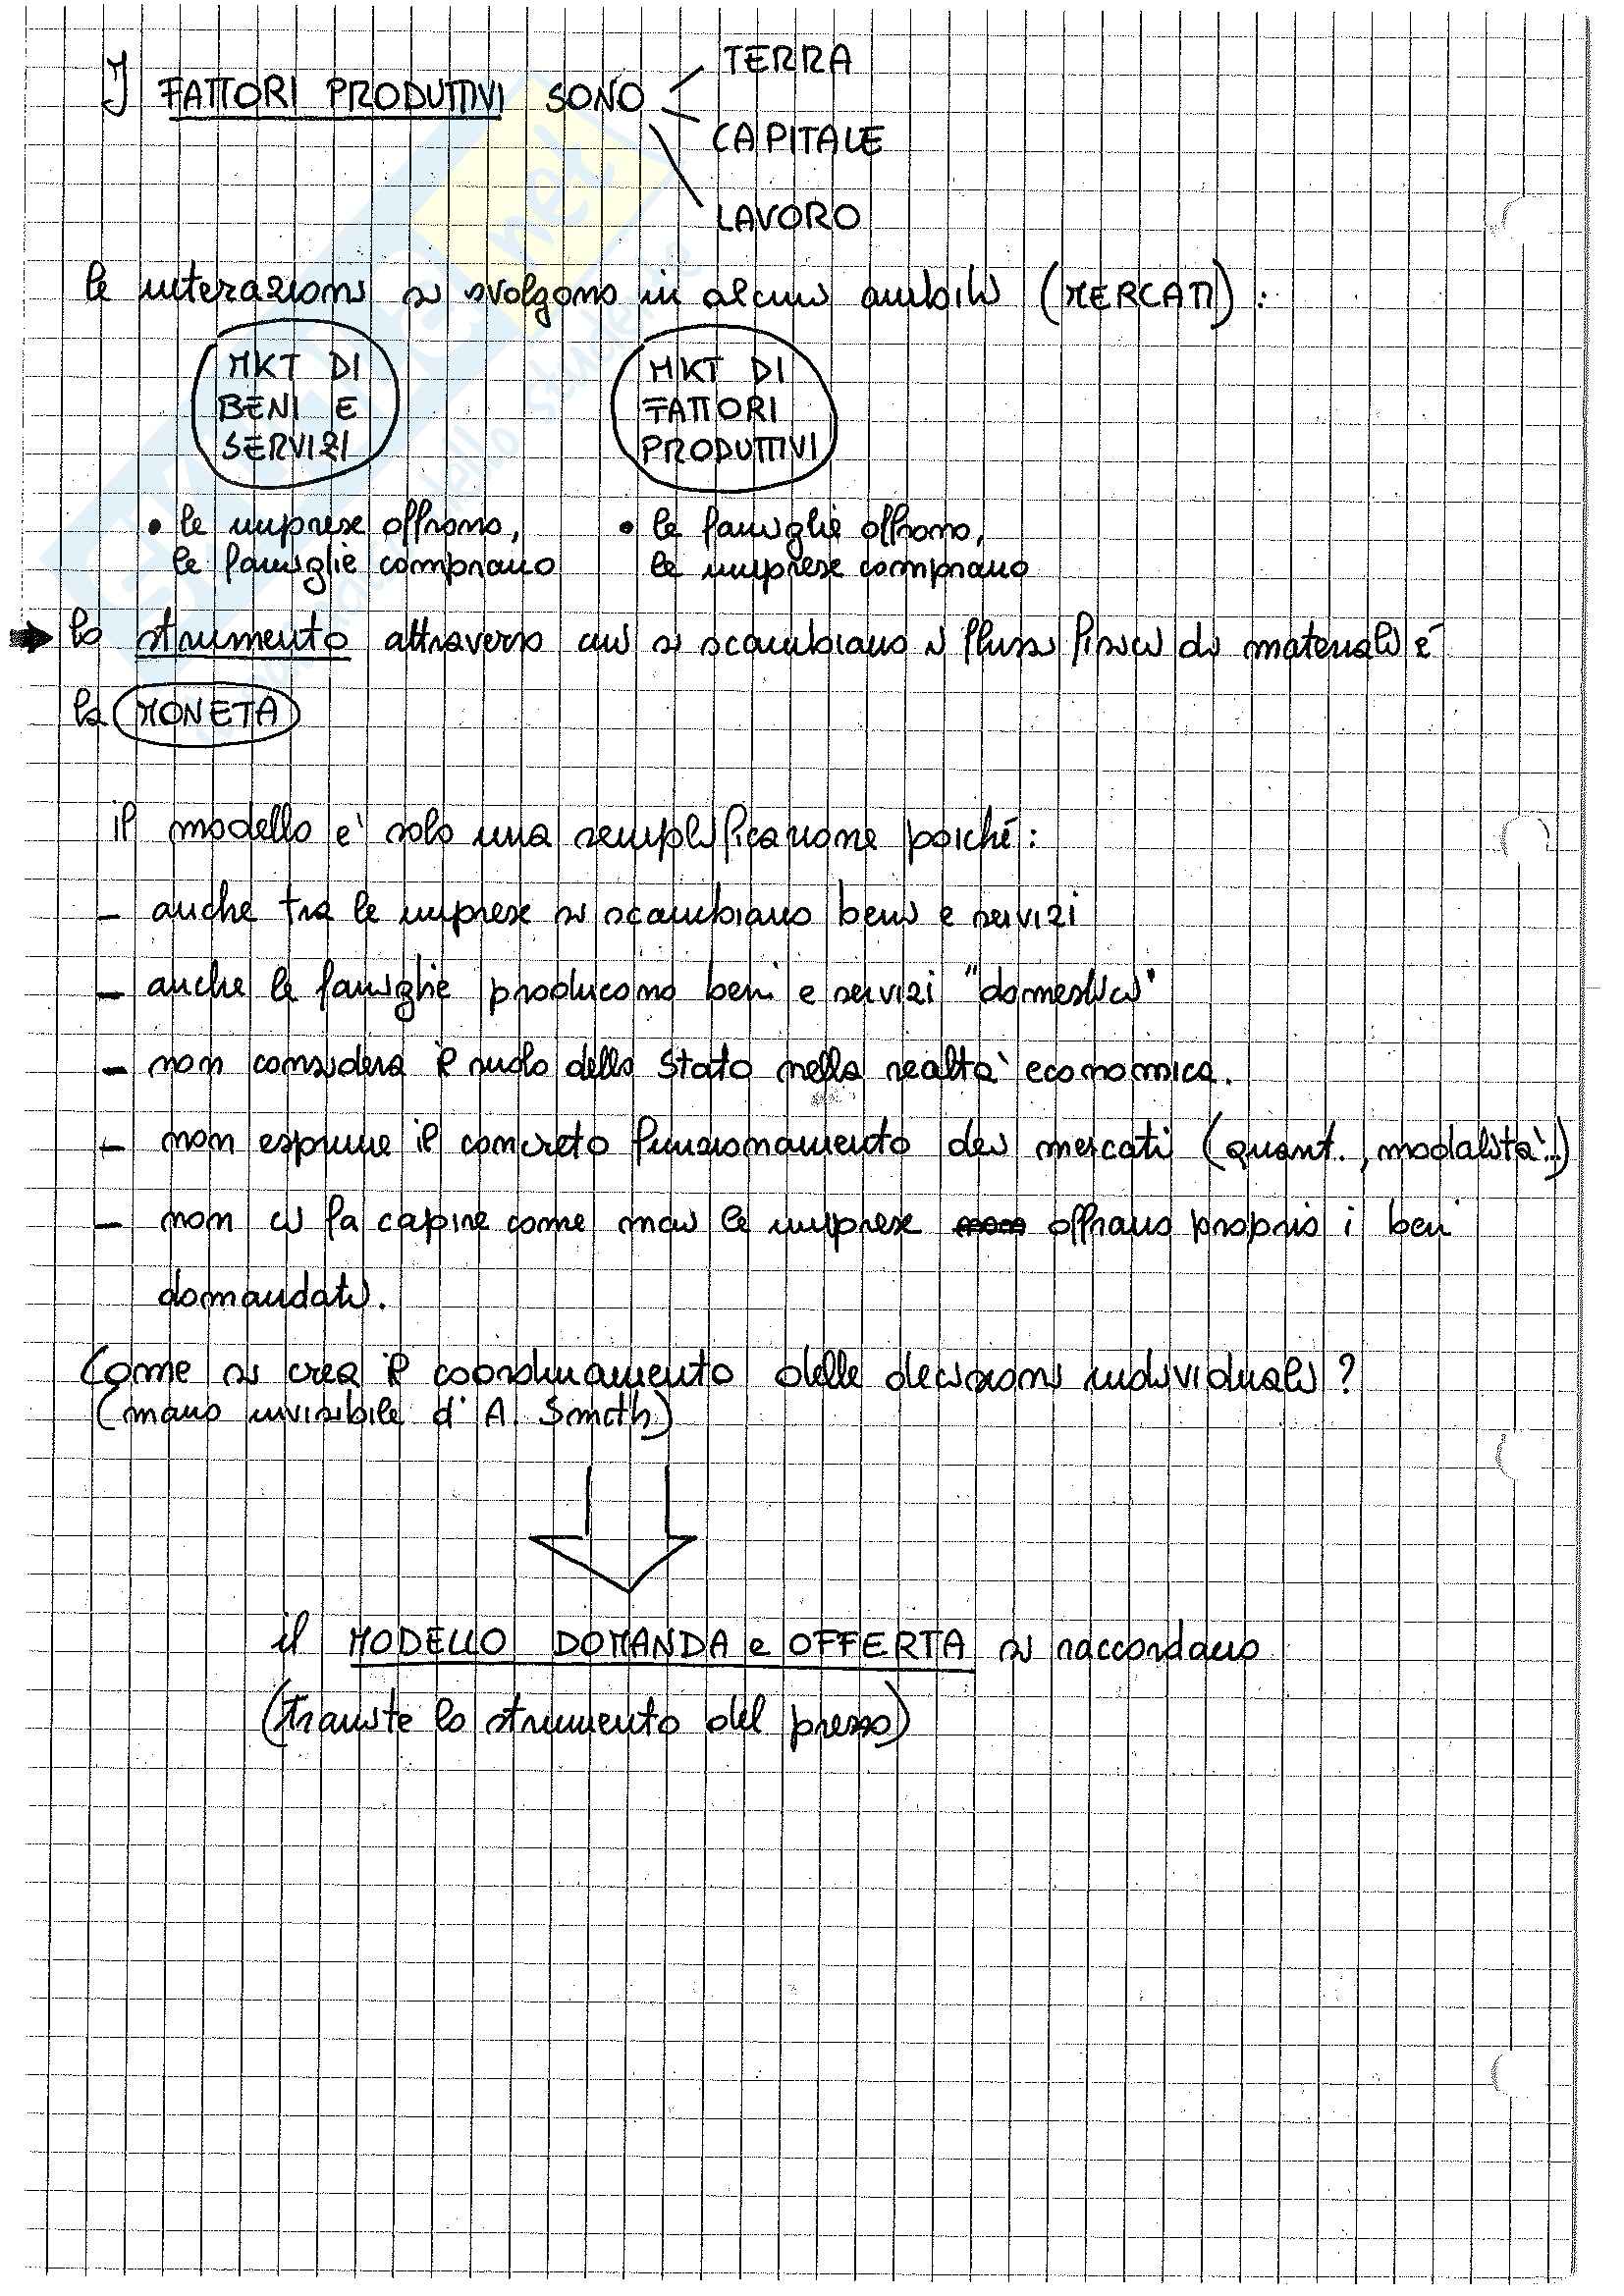 I FATTORI PRODUTTIVI SONO
TERRA
CAPITALE
LAVORO
le interazioni si svolgono in alcuni ambiti (MERCATI):
MKT DI
BENI E
SERVIZI
MKT DI
FATTORI
PRODUTTIVI
• le imprese offrono,
le famiglie comprano
• le famiglie offrono,
le imprese comprano
lo strumento attraverso cui si scambiano i flussi fisici di materiali è
la MONETA
il modello e' solo una semplificazione poiché:
- anche tra le imprese si scambiano beni e servizi
- anche le famiglie producono beni e servizi "domestici"
- non considera il ruolo dello Stato nella realta' economica.
- non esprime il concreto funzionamento dei mercati (quant., modalita'..)
- non ci fa capire come mai le imprese offrano proprio i beni
domandati.
Come si crea il coordinamento delle decisioni individuali?
(mano invisibile d' A. Smith)
il MODELLO DOMANDA e OFFERTA si raccordano
(tramite lo strumento del prezzo)